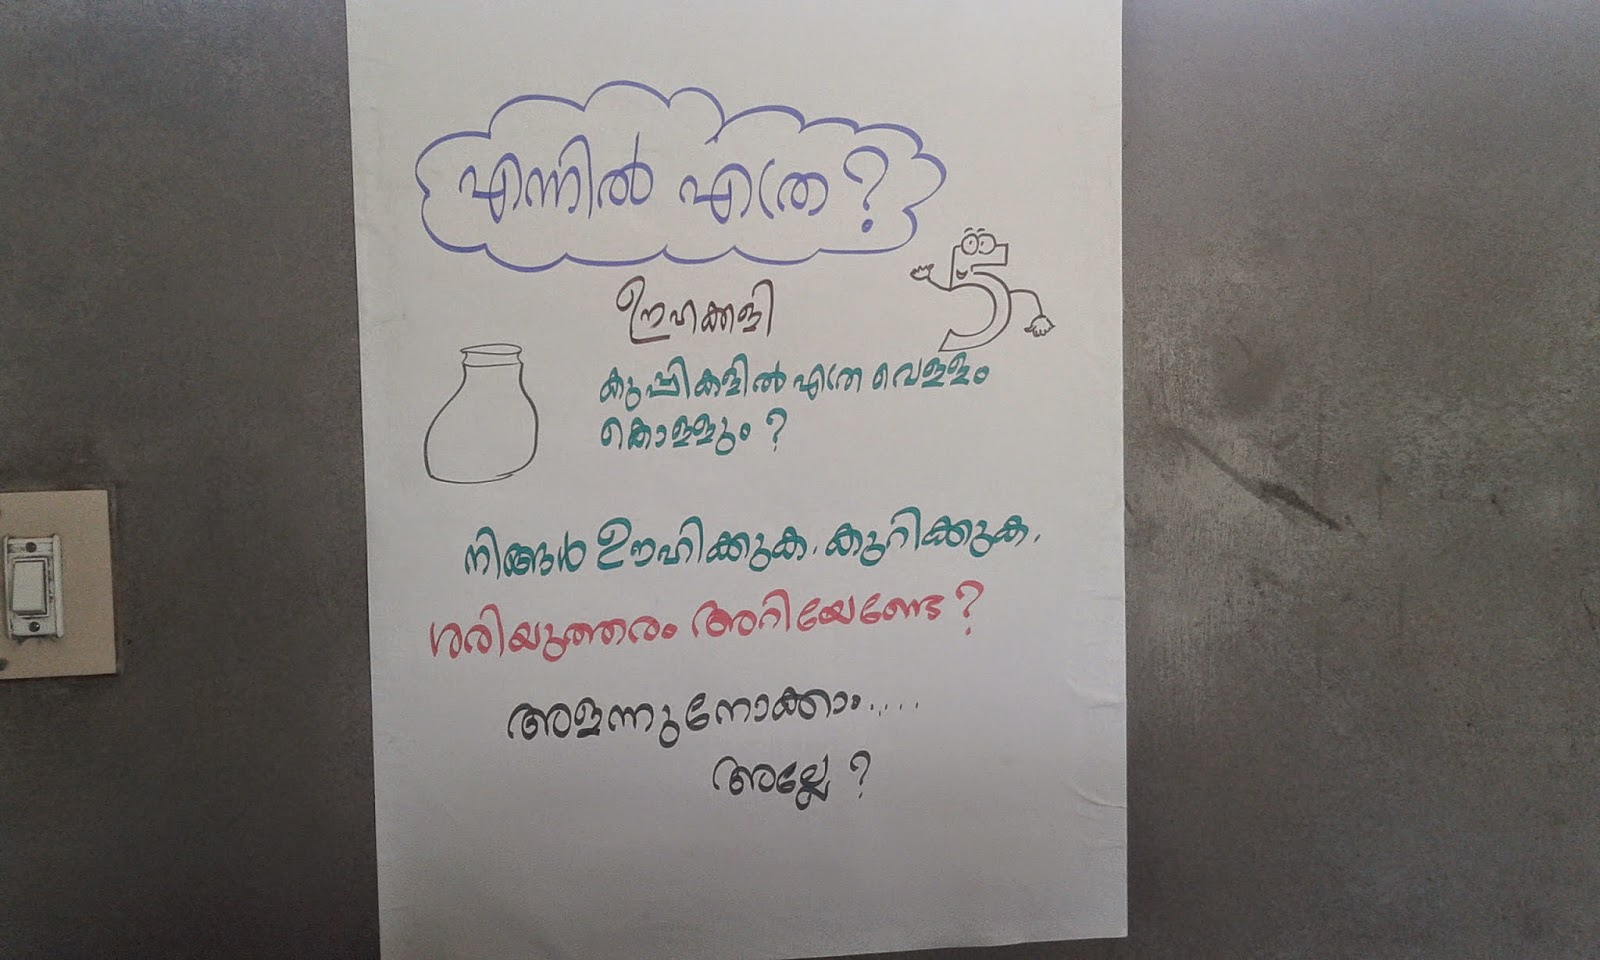 എന്നിൽ എത്ര?
5
ഊഹക്കളി
കുപ്പികളിൽ എത്ര വെള്ളം
കൊള്ളും ?
നിങ്ങൾ ഊഹിക്കുക. കുറിക്കുക.
ശരിയുത്തരം അറിയേണ്ടേ ?
അളന്നുനോക്കാം.....
അല്ലേ ?